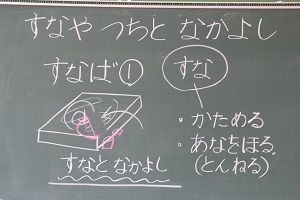 すなや つちと なかよし
すなば① すな
・かためる
・あなをほる。
(とんねる)
すなと なかよし